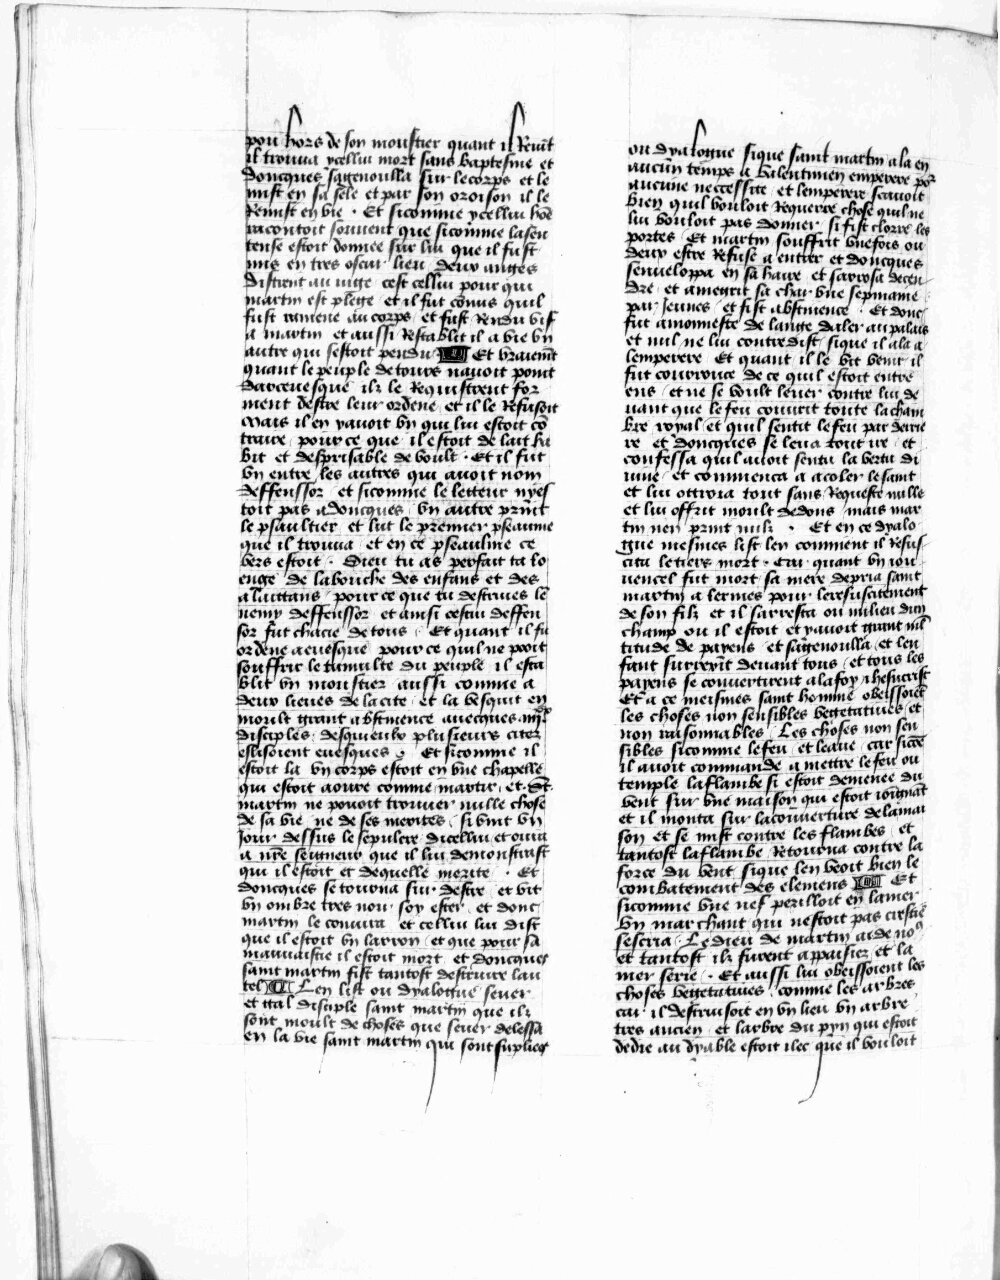 pou hors de son moustier quant il Revit
il trouva ycellui mort sans baptesme et
doncques sagenoulla sur le corps et le
mist en sa sele et par son oroison il le
Remist en vie · Et sicomme ycellui hoe
racontoit souvent que sicomme la sen
tense estoit donnee sur lui que il fust
mis en tres oscur lieu deux anges
distrent au iuge cest cellui pour qui
martin est plege et il fut conus quil
fust ramene au corps et fust Rendu vif
a martin et aussi Restablit il a vie vn
autre qui sestoit pendu Et vraiemt
quant le peuple de tours nauoit point
darceuesque ilz le Requistrent for
ment destre leur ordene et il le Refusoit
Mais il en yauoit vn qui lui estoit co
traire pource que il estoit de lait ha
bit et desprisable de voult · Et il fut
vn entre les autres qui auoit nom
deffenssor et sicomme le letteur nyes
toit pas adoncques vn autre print
le psaultier et lut le premier pseaume
que il trouua et en ce pseaulme ce
vers estoit · Dieu tu as perfait ta lo
enge de la bouche des enfans et des
alaittans pour ce que tu destrues le
nemy deffenssor et ainsi cestui deffen
sor fut chacie de tous · Et quant il fu
ordene aeuesque pource quil ne poit
souffrir le tumulte du peuple il esta
blit vn moustier aussi comme a
deux lieues de la cite et la vesquit en
moult grant abstinence auecques iiiixx
disciples desquieulx plusieurs citez
eslisoient euesques · Et sicomme il
estoit la vn corps estoit en vne chapelle
qui estoit aoure comme martir et St
martin ne pouoit trouuer nulle chose
de sa vie ne de ses merites si vint vn
Jour dessus le sepulcre dicellui et oura
a nre seigneur que il lui demonstrast
qui il estoit et dequelle merite · Et
doncques se tourna sur destre et vit
vn ombre tres noir soy ester et donc
martin le coniura et cellui lui dist
que il estoit vn larron et que pour sa
mauuaistie il estoit mort et doncques
saint martin fist tantost destruire lau
tel Len list ou dyalogue seuer
et gal disciple saint martin que ilz
sont moult de choses que seuer delessa
en la vie saint martin qui sont supliees
ou dyalogue sique saint martin ala en
aucun temps a valentinien emperere por
aucune neccessite et lemperere scauoit
bien quil vouloit Requerre chose quil ne
lui vouloit pas donner si fist clorre les
portes Et martin souffrit vnefois ou
deux estre Refuse a entrer et doncques
senueloppa en sa haire et sarrosa de cen
dre et amegrit sa char vne sepmaine
par Jeunes et fist abstinence · Et donc
fut amonneste de lange daler au palais
et nul ne lui contredist sique il ala a
lemperere Et quant il le vit venir il
fut courrouce de ce quil estoit entre
ens et ne se voult leuer contre lui de
uant que le feu couurit toute la cham
bre royal et quil sentit le feu par derrie
re et doncques se leua tout ire et
confessa quil auoit sentu la vertu di
uine et commenca a acoler le saint
et lui ottroia tout sans Requeste nulle
et lui offrit moult de dons mais mar
tin nen print nulz · Et en ce dyalo
gue mesmes list len comment il Resus
cita le tiers mort · Car quant vn iou
uencel fut mort sa mere depria saint
martin a lermes pour le resuscitement
de son filz et il sarresta ou milieu dun
champ ou il estoit et yauoit grant mul
titude de payens et sagenoulla et len
fant surreyit deuant tous et tous les
payens se conuertirent a la foy ihesucrist
Et a ce meismes saint homme obeissoient
les choses non sensibles vegetatiues et
non raisonnables Les choses non sen
sibles sicomme le feu et leaue car sicoe
il auoit commande a mettre le feu ou
temple la flambe si estoit demenee du
vent sur vne maison qui estoit ioignat
et il monta sur la couuerture de la mai
son et se mist contre les flambes et
tantost la flambe Retourna contre la
force du vent sique len veoit bien le
combatement des elemens Et
sicomme vne nef perilloit en la mer
vn marchant qui nestoit pas cristie
sescria · Le dieu de martin aide nous
et tantost ilz furent appaisiez et la
mer serie · Et aussi lui obeissoient les
choses vegetatiues comme les arbres
car il destruisoit en vn lieu vn arbre
tres ancien et larbre du pyn qui estoit
dedie au dyable estoit ilec que il vouloit